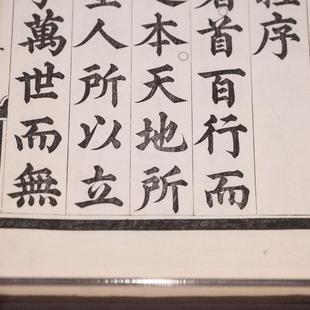 序
首百行而
本天地所
人所以立
萬世而無